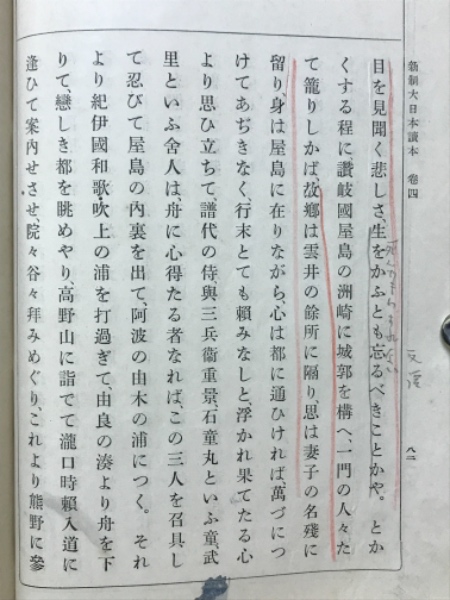 新制大日本讀本　卷四
八二
目を見聞く悲しさ、生をかふとも忘るべきことかや。　とか
くする程に、讚岐國屋島の洲崎に城郭を構へ、一門の人々た
て籠りしかば、故鄕は雲井の餘所に隔り、思は妻子の名殘に
留り、身は屋島に在りながら、心は都に通ひければ、萬づにつ
けてあぢきなく、行末とても賴みなしと、浮かれ果てたる心
より思ひ立ちて、譜代の侍與三兵衞重景、石童丸といふ童、武
里といふ舍人は、舟に心得たる者なれば、この三人を召具し
て忍びて屋島の內裏を出で、阿波の由木の浦につく。　それ
より紀伊國和歌・吹上の浦を打過ぎて、由良の湊より舟を下
りて、戀しき都を眺めやり、高野山に詣でて瀧口時賴入道に
逢ひて案內せさせ、院々谷々拜みめぐり、これより熊野に參